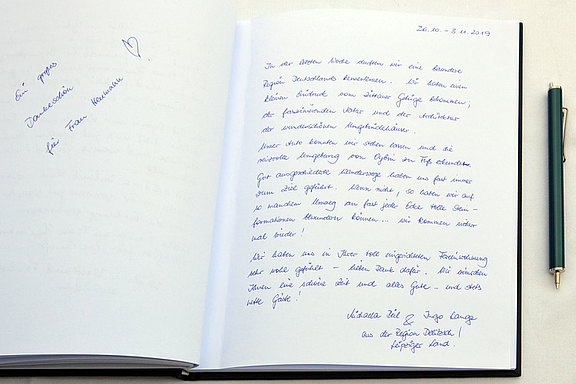 Ein großes
Dankeschön
für Frau Neumann
26.10. - 3.11.2019
In der letzten Woche durften wir eine besondere
Region Deutschlands kennenlernen. Wir haben einen
kleinen Eindruck vom Zittauer Gebirge bekommen,
der faszinierenden Natur und der Architektur
der wunderschönen Umgebindehäuser.
Unser Auto konnten wir stehen lassen und die
reizvolle Umgebung von Oybin zu Fuß erkunden.
Gut ausgeschilderte Wanderwege haben uns fast immer
zum Ziel geführt. Wenn nicht, so haben wir auf
so manchem Umweg an fast jeder Ecke tolle Stein-
formationen bewundern können ... wir kommen sicher
mal wieder!
Wir haben uns in Ihrer toll eingerichteten Ferienwohnung
sehr wohl gefühlt - lieben Dank dafür. Wir wünschen
Ihnen eine schöne Zeit und alles Gute - und stets
nette Gäste!
Michaela & Ingo Lange
aus der Region Delitzsch /
Leipziger Land.